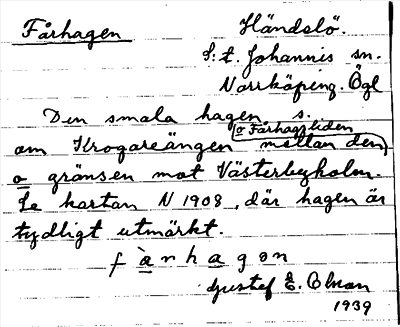 Fårhagen
Händelö.
S:t Johannis sn.
Norrköping. Ögl
Den smala hagen s.
om Krogareängen mellan den
o Fårhagsliden
o gränsen mot Västerbyholm.
Se kartan N 1908, där hagen är
tydligt utmärkt.
fàrhagən
Gustaf E. Olman
1939